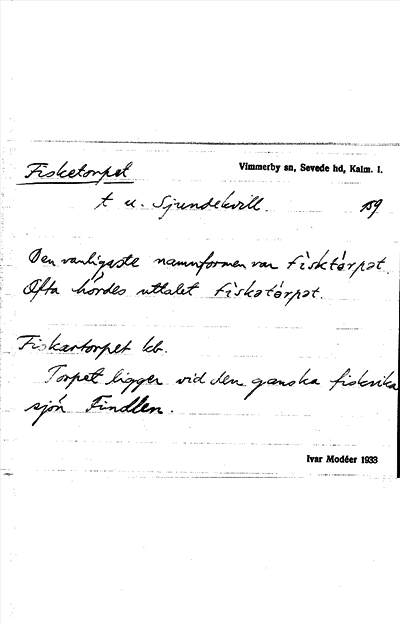 Fisketorpet
Vimmerby sn, Sevede hd, Kalm. l.
t u. Sjundekvill.
Den vanligaste namnformen var fisktòrpət.
Ofta hördes uttalet fiskətòrpət.
Fiskartorpet kb.
Torpet ligger vid den ganska fiskrika
sjön Findlen.
Ivar Modéer 1933